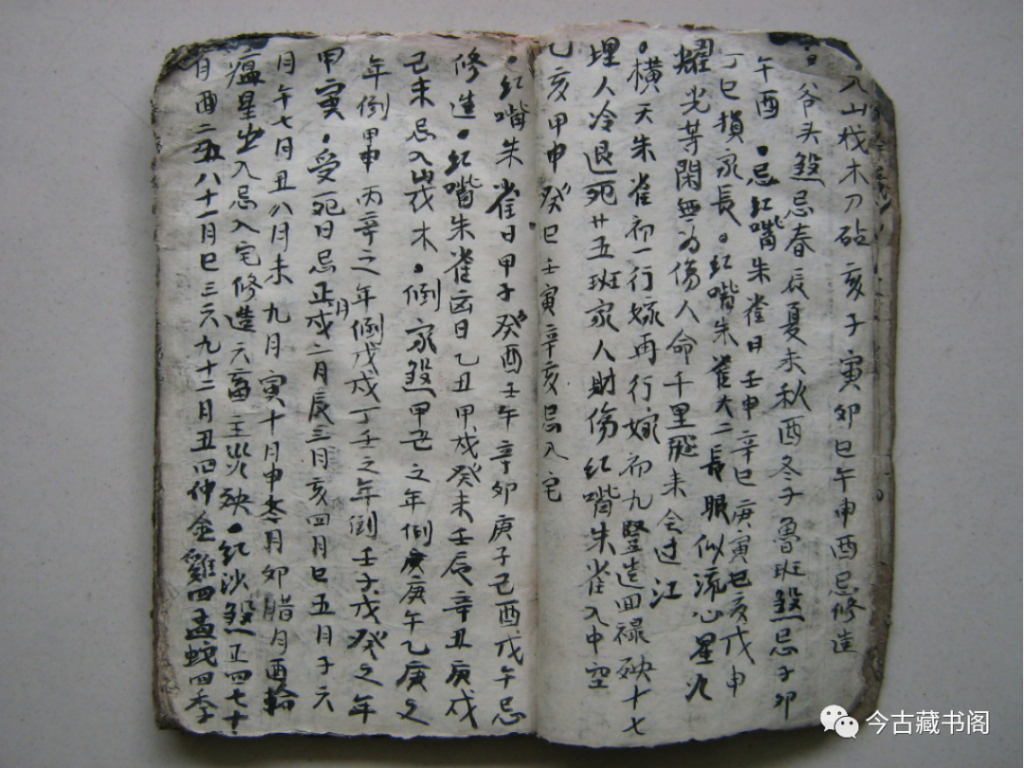 入山伐木刀砧亥子寅卯巳午申酉忌修造
爷头煞忌春辰夏未秋酉冬子魯班煞忌子卯
午酉。忌紅嘴朱雀日壬申辛巳庚寅己亥戊申
丁巳損家長。紅嘴朱雀大二長眼似流心星火
耀光等閑無為傷人命千里飛来会过江
。橫天朱雀初一行嫁再行嫁初九豎造回禄殃十七
埋人冷退死廿五班家人財傷紅嘴朱雀入中空
乙亥甲申癸巳壬寅辛亥忌入宅
。紅嘴朱雀日甲子癸酉壬午辛卯庚子己酉戊午忌
修造。紅嘴朱雀凶日乙丑甲戌癸未壬辰辛丑庚戌
己未忌入山伐木。倒家煞甲己之年倒庚庚午乙庚之
年倒甲申丙辛之年倒戊戌丁壬之年倒壬子戊癸之年
甲寅。受死日忌正月戌二月辰三月亥四月巳五月子六
月午七月丑八月未九月寅十月申冬月卯腊月酉輪
瘟星出入忌入宅修造六畜主災殃。紅沙煞正四七十
月酉二五八十一月巳三六九十二月丑四仲金雞四孟蛇四季
今古藏书阁